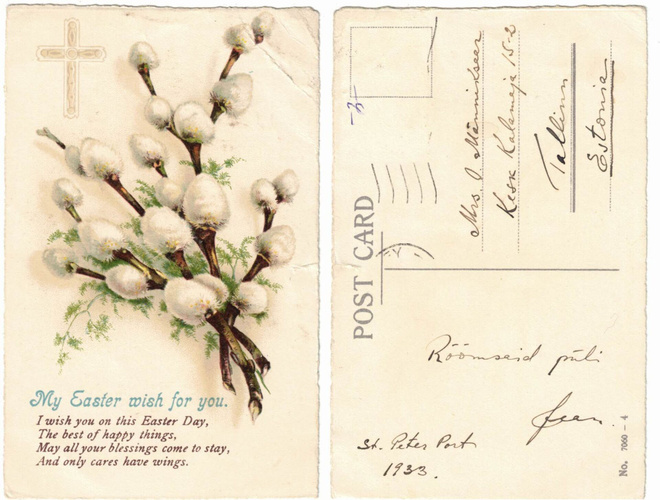 My Easter wish for you.
I wish you on this Easter Day,
The best of happy things,
May all your blessings come to stay,
And only cares have wings.
POST CARD
Mrs. J Männikseer
Kesk Kalamaja 15-2
Tallinn
Estonia
Rõõmsaid pühi
Jean.
St. Peter Port
1933.
No. 7060 - 4